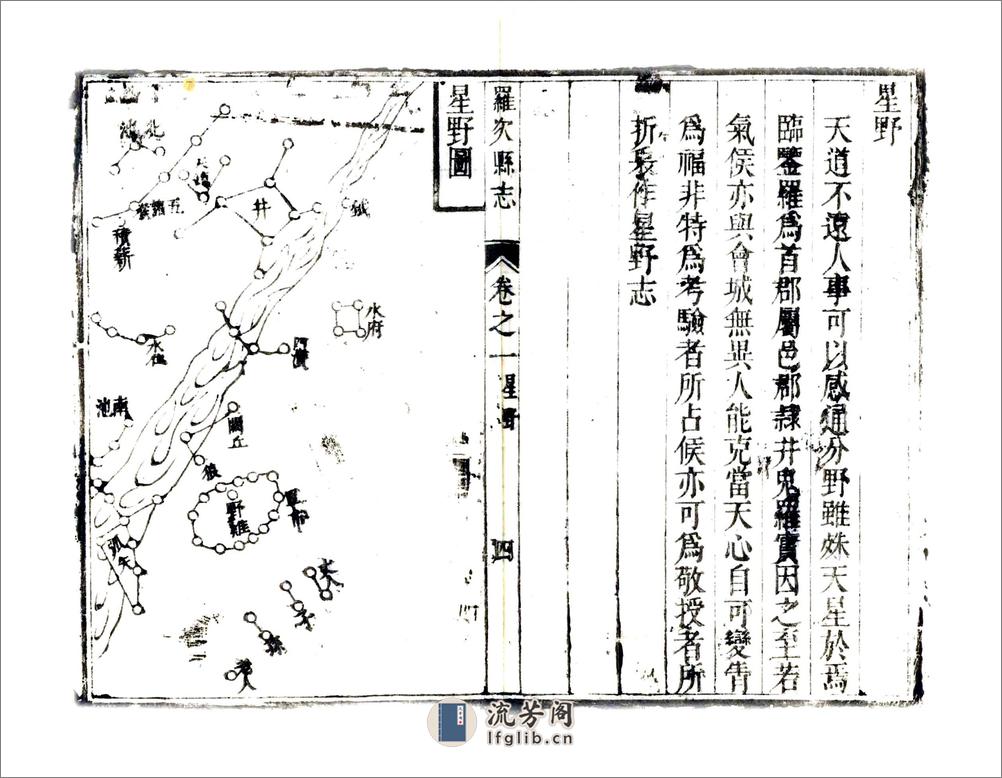 星野
天道不遠人事可以感通分野雖殊天星於焉
臨鑒羅爲首郡屬邑郡隷井鬼羅實因之至若
氣侯亦與會城無異人能克當天心自可變眚
爲福非特爲考驗者所占候亦可爲敬授者所
折衷作星野志
羅次縣志
卷之一
星野
四
星野圖
北河
井
鉞
五諸侯
積薪
水府
水位
四瀆
南河
闕丘
狼
野雞
軍市
弧矢
丈人
子
孫
老人
流芳阁
lfglib.cn